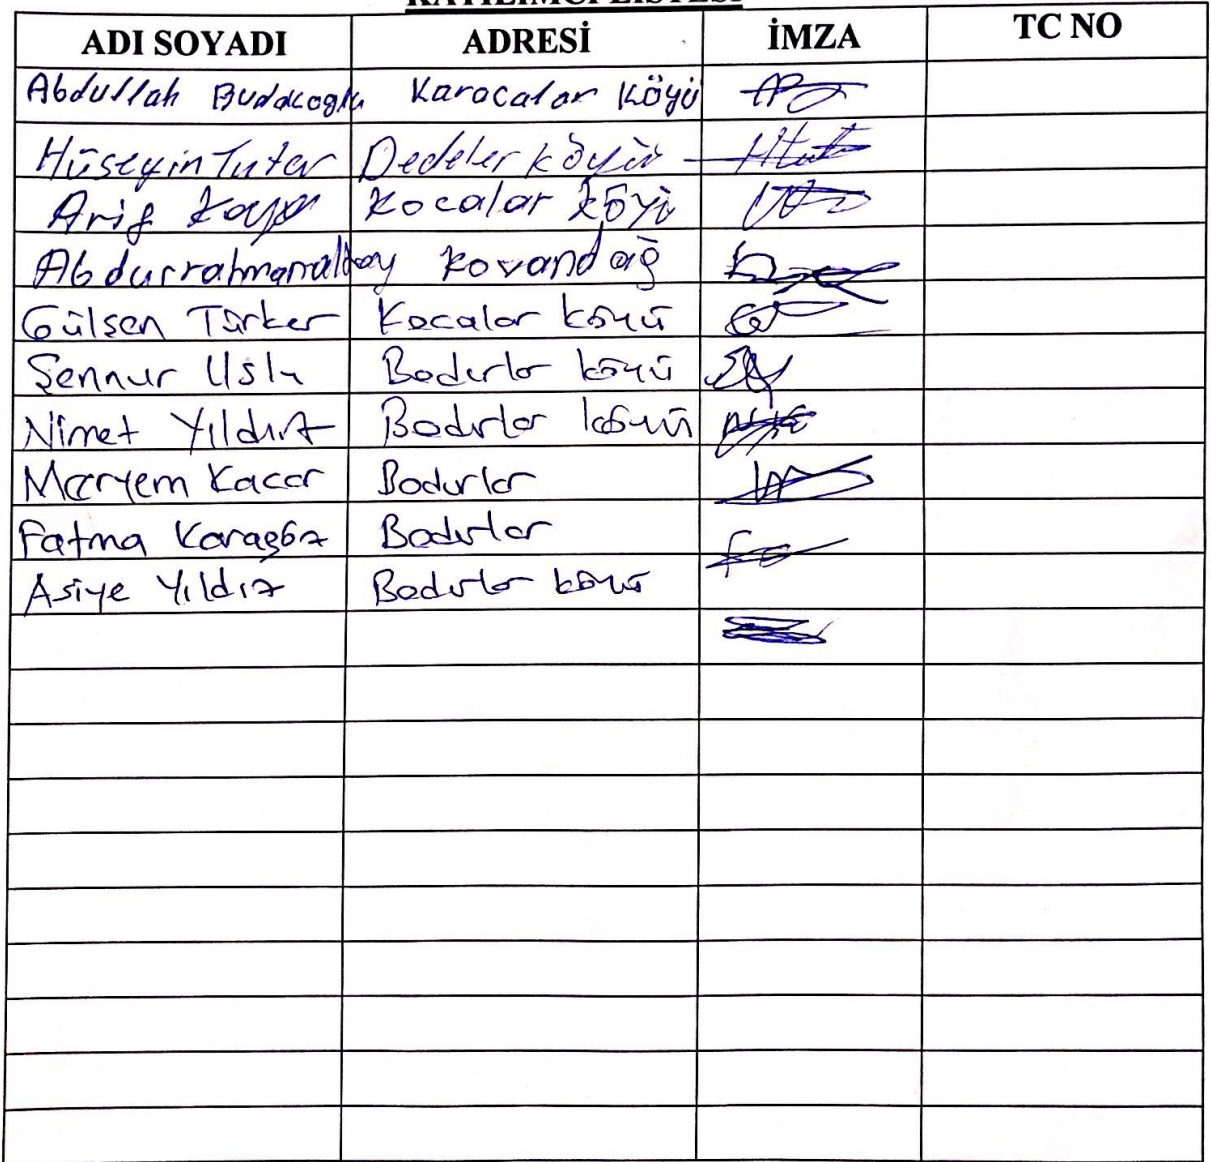 KATILIMCI LİSTESİ
ADI SOYADI ADRESİ İMZA TC NO
Abdullah Budakoglu Karacalar Köyü
Hüseyin Tutar Dedeler köyü
Arif Kaya Kocalar köyü
Abdurrahman altay Kovandağ
Gülsen Türker Kocalar köyü
Şennur Uslu Bodurlar köyü
Nimet Yıldız Bodurlar köyü
Meryem Kacar Bodurlar
Fatma Karagöz Bodurlar
Asiye Yıldız Bodurlar köyü